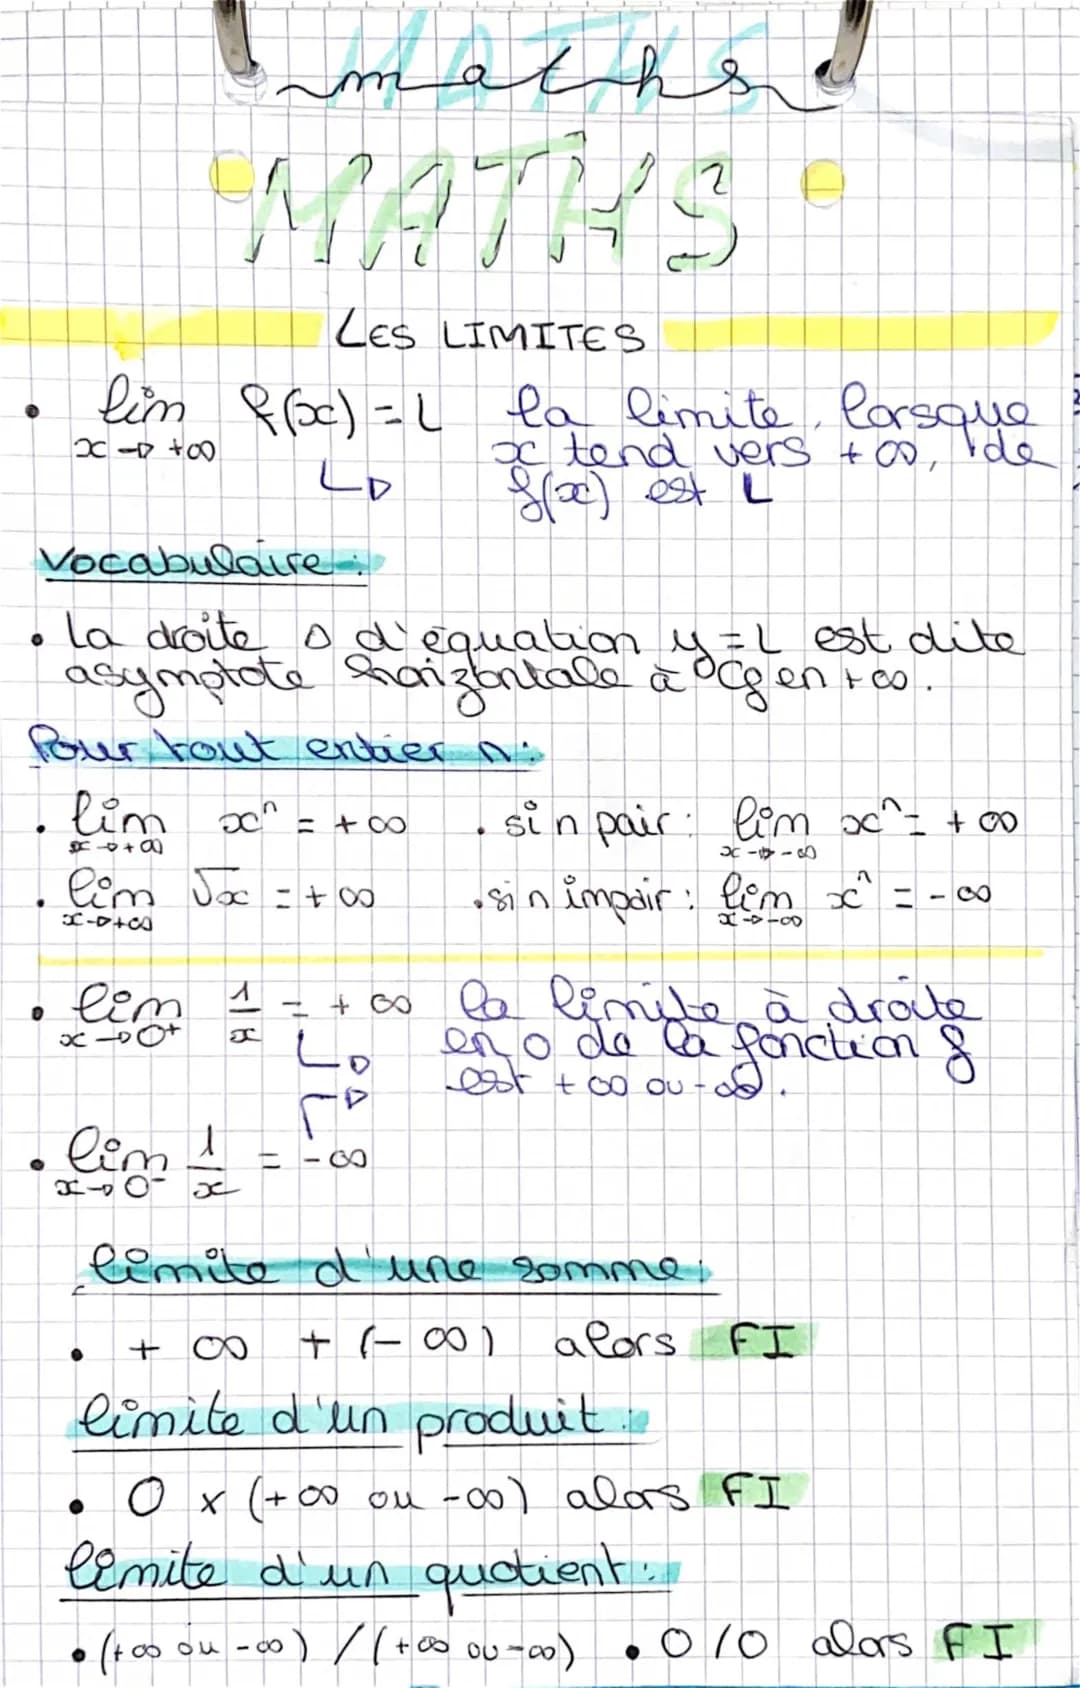 MATHS
maths
MATHS
LES LIMITES
• lim f(x) = L la limite, lorsque
x → +∞ x tend vers +∞, de
↳ f(x) est L
Vocabulaire :
• La droite Δ d'équation y = L est dite
asymptote horizontale à Cf en +∞.
Pour tout entier n :
• lim xⁿ = +∞ • si n pair : lim xⁿ = +∞
x → +∞ x → -∞
• lim √x = +∞ • si n impair : lim xⁿ = -∞
x → +∞ x → -∞
• lim 1/x = +∞ la limite à droite
x → 0+ en 0 de la fonction f
est +∞ ou -∞.
• lim 1/x = -∞
x → 0-
limite d'une somme :
• +∞ + (-∞) alors FI
limite d'un produit :
• 0 x (+∞ ou -∞) alors FI
limite d'un quotient :
• (+∞ ou -∞) / (+∞ ou -∞) • 0/0 alors FI